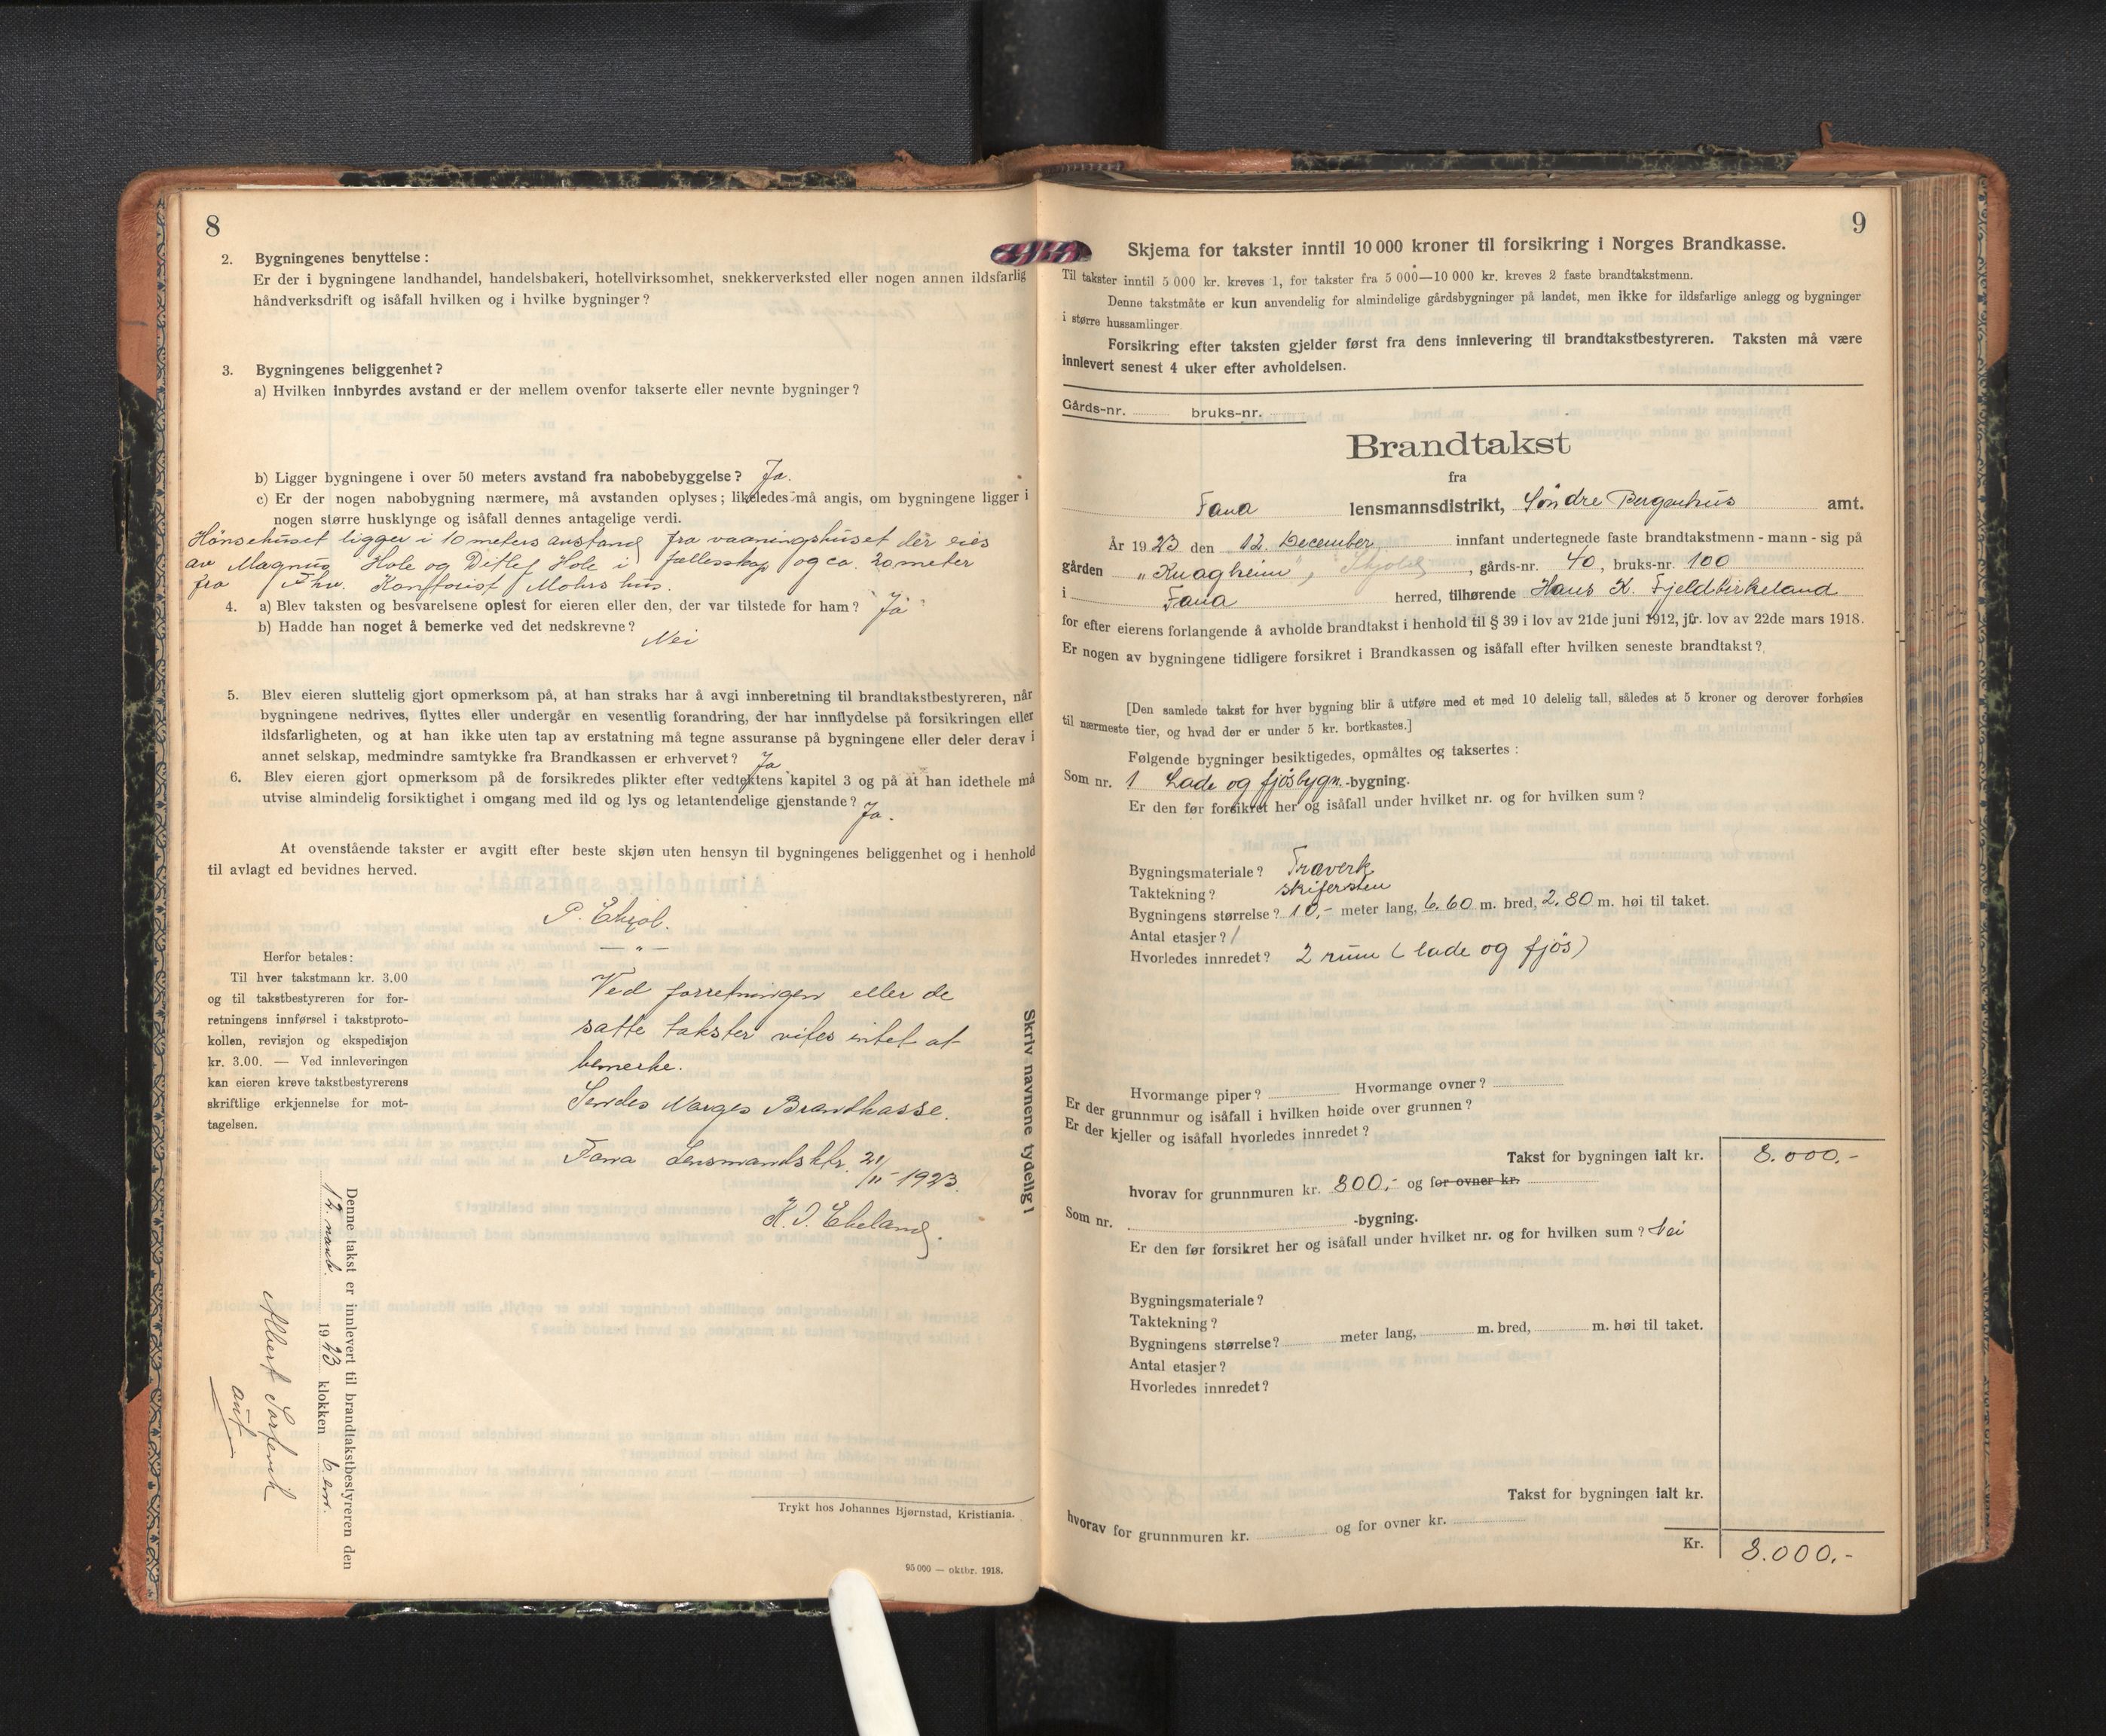 8
2. Bygningenes benyttelse :
Er der i bygningene landhandel, handelsbakeri, hotellvirksomhet, snekkerverksted eller nogen annen ildsfarlig
håndverksdrift og isåfall hvilken og i hvilke bygninger ?
3. Bygningenes beliggenhet ?
a) Hvilken innbyrdes avstand er der mellem ovenfor takserte eller nevnte bygninger ?
b) Ligger bygningene i over 50 meters avstand fra nabobebyggelse ? Ja.
c) Er der nogen nabobygning nærmere, må avstanden oplyses ; likeledes må angis, om bygningene ligger i
nogen større husklynge og isåfall dennes antagelige verdi.
Hönsehuset ligger i 10 meters avstand fra vaaningshuset der eies
av Magnus Hole og Ditlef Hole i fællesskap og ca. 20 meter
fra Mohrs hus.
4. a) Blev taksten og besvarelsene oplest for eieren eller den, der var tilstede for ham ? Ja
b) Hadde han noget å bemerke ved det nedskrevne ?
Nei
5. Blev eieren sluttelig gjort opmerksom på, at han straks har å avgi innberetning til brandtakstbestyreren, når
bygningene nedrives, flyttes eller undergår en vesentlig forandring, der har innflydelse på forsikringen eller
ildsfarligheten, og at han ikke uten tap av erstatning må tegne assuranse på bygningene eller deler derav i
annet selskap, medmindre samtykke fra Brandkassen er erhvervet ? Ja
6. Blev eieren gjort opmerksom på de forsikredes plikter efter vedtektens kapitel 3 og på at han idethele må
utvise almindelig forsiktighet i omgang med ild og lys og letantendelige gjenstande ? Ja.
At ovenstående takster er avgitt efter beste skjøn uten hensyn til bygningenes beliggenhet og i henhold
til avlagt ed bevidnes herved.
— „ —
Herfor betales :
Til hver takstmann kr. 3.00
og til takstbestyreren for for-
retningens innførsel i takstproto-
kollen, revisjon og ekspedisjon
kr. 3.00. — Ved innleveringen
kan eieren kreve takstbestyrerens
skriftlige erkjennelse for mot-
tagelsen.
Ved forretningen eller de
satte takster vites intet at
bemerke.
Sendes Norges Brandkasse.
Fana Lensmandsktr. 21/11-1923.
Skriv navnene tydelig !
Denne takst er innlevert til brandtakstbestyreren den
12. 1923 klokken 6 em.
Albert
Trykt hos Johannes Bjørnstad, Kristiania.
95 000 — oktbr. 1918.
9
Skjema for takster inntil 10 000 kroner til forsikring i Norges Brandkasse.
Til takster inntil 5 000 kr. kreves 1, for takster fra 5 000—10 000 kr. kreves 2 faste brandtakstmenn.
Denne takstmåte er kun anvendelig for almindelige gårdsbygninger på landet, men ikke for ildsfarlige anlegg og bygninger
i større hussamlinger.
Forsikring efter taksten gjelder først fra dens innlevering til brandtakstbestyreren. Taksten må være
innlevert senest 4 uker efter avholdelsen.
Gårds-nr. bruks-nr.
Brandtakst
fra
Fana lensmannsdistrikt, Söndre Bergenhus amt.
År 1923 den 12. December innfant undertegnede faste brandtakstmenn - mann - sig på
gården „Knagheim", gårds-nr. 40, bruks-nr. 100
i Fana herred, tilhørende Hans K. Fjeldbirkeland
for efter eierens forlangende å avholde brandtakst i henhold til § 39 i lov av 21de juni 1912, jfr. lov av 22de mars 1918.
Er nogen av bygningene tidligere forsikret i Brandkassen og isåfall efter hvilken seneste brandtakst ?
[Den samlede takst for hver bygning blir å utføre med et med 10 delelig tall, således at 5 kroner og derover forhøies
til nærmeste tier, og hvad der er under 5 kr. bortkastes.]
Følgende bygninger besiktigedes, opmåltes og taksertes :
Som nr. 1 Lade og fjösbygn. -bygning.
Er den før forsikret her og isåfall under hvilket nr. og for hvilken sum ?
Bygningsmateriale ? Træverk
Taktekning ? skifersten
Bygningens størrelse ? 10,- meter lang, 6.60 m. bred, 2.80 m. høi til taket.
Antal etasjer ? 1
Hvorledes innredet ? 2 rum (lade og fjös)
Hvormange piper ? Hvormange ovner ?
Er der grunnmur og isåfall i hvilken høide over grunnen ?
Er der kjeller og isåfall hvorledes innredet ?
Takst for bygningen ialt kr. 8.000,-
hvorav for grunnmuren kr. 800,- og for ovner kr.
Som nr. -bygning.
Er den før forsikret her og isåfall under hvilket nr. og for hvilken sum ? Nei
Bygningsmateriale ?
Taktekning ?
Bygningens størrelse ? meter lang, m. bred, m. høi til taket.
Antal etasjer ?
Hvorledes innredet ?
Takst for bygningen ialt kr.
hvorav for grunnmuren kr. og for ovner kr.
Kr. 8.000,-